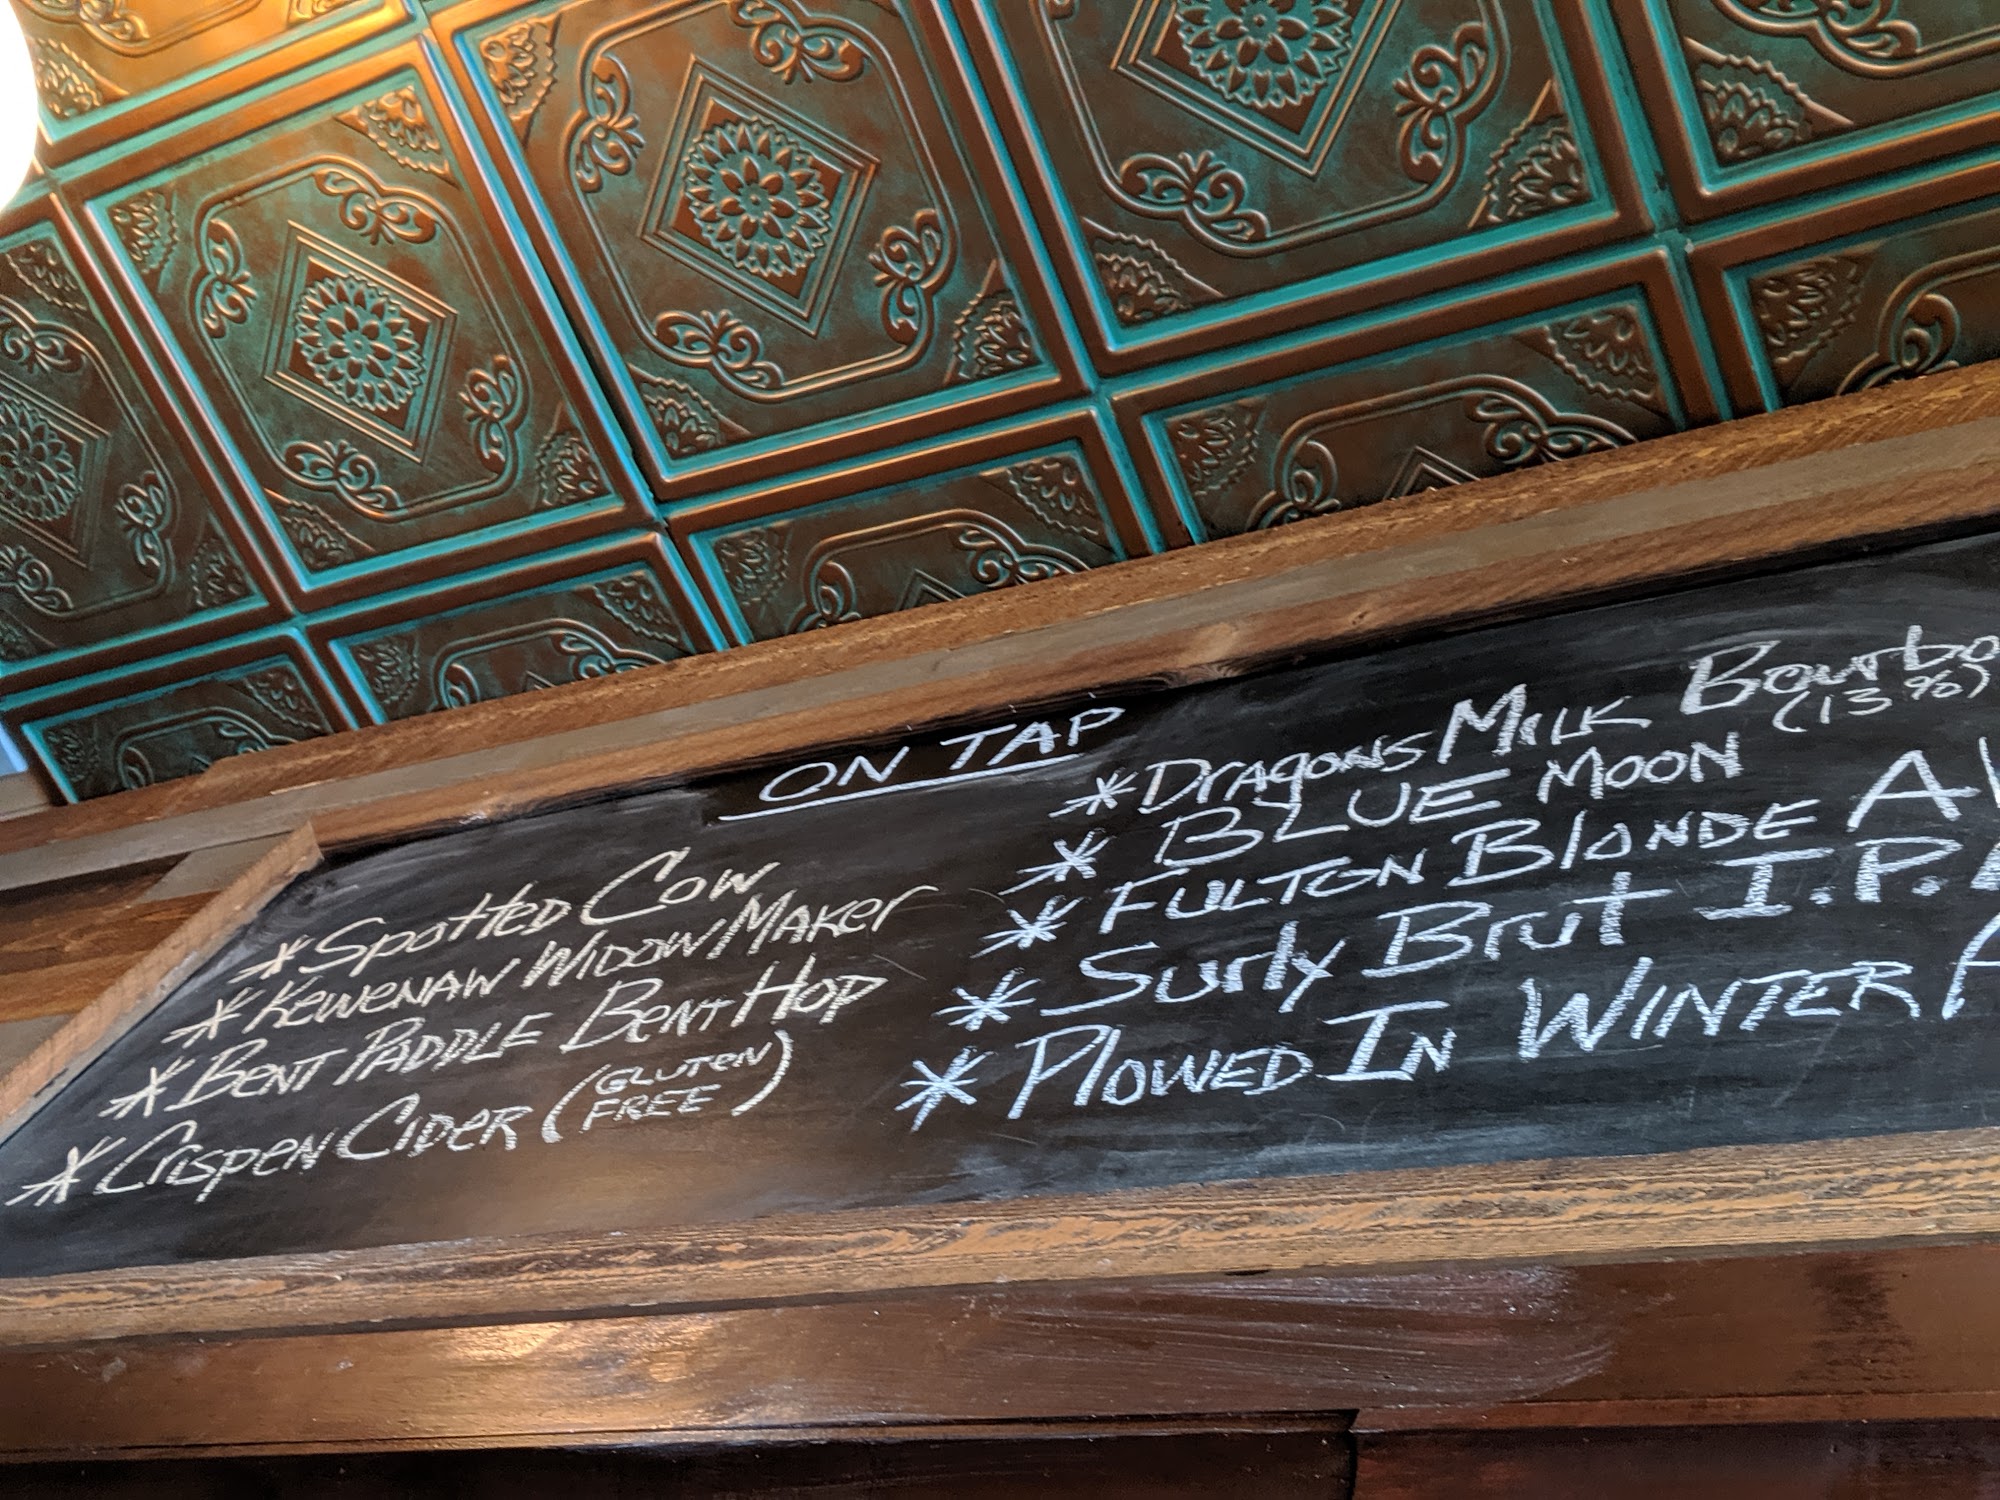 ON TAP
* Spotted Cow
* Kewenaw Widow Maker
* Bent Paddle Bent Hop
* Crispen Cider (Gluten
Free)
* Dragons Milk Bourbo
(13%)
* Blue Moon
* Fulton Blonde A
* Surly Brut I.P.A
* Plowed In Winter